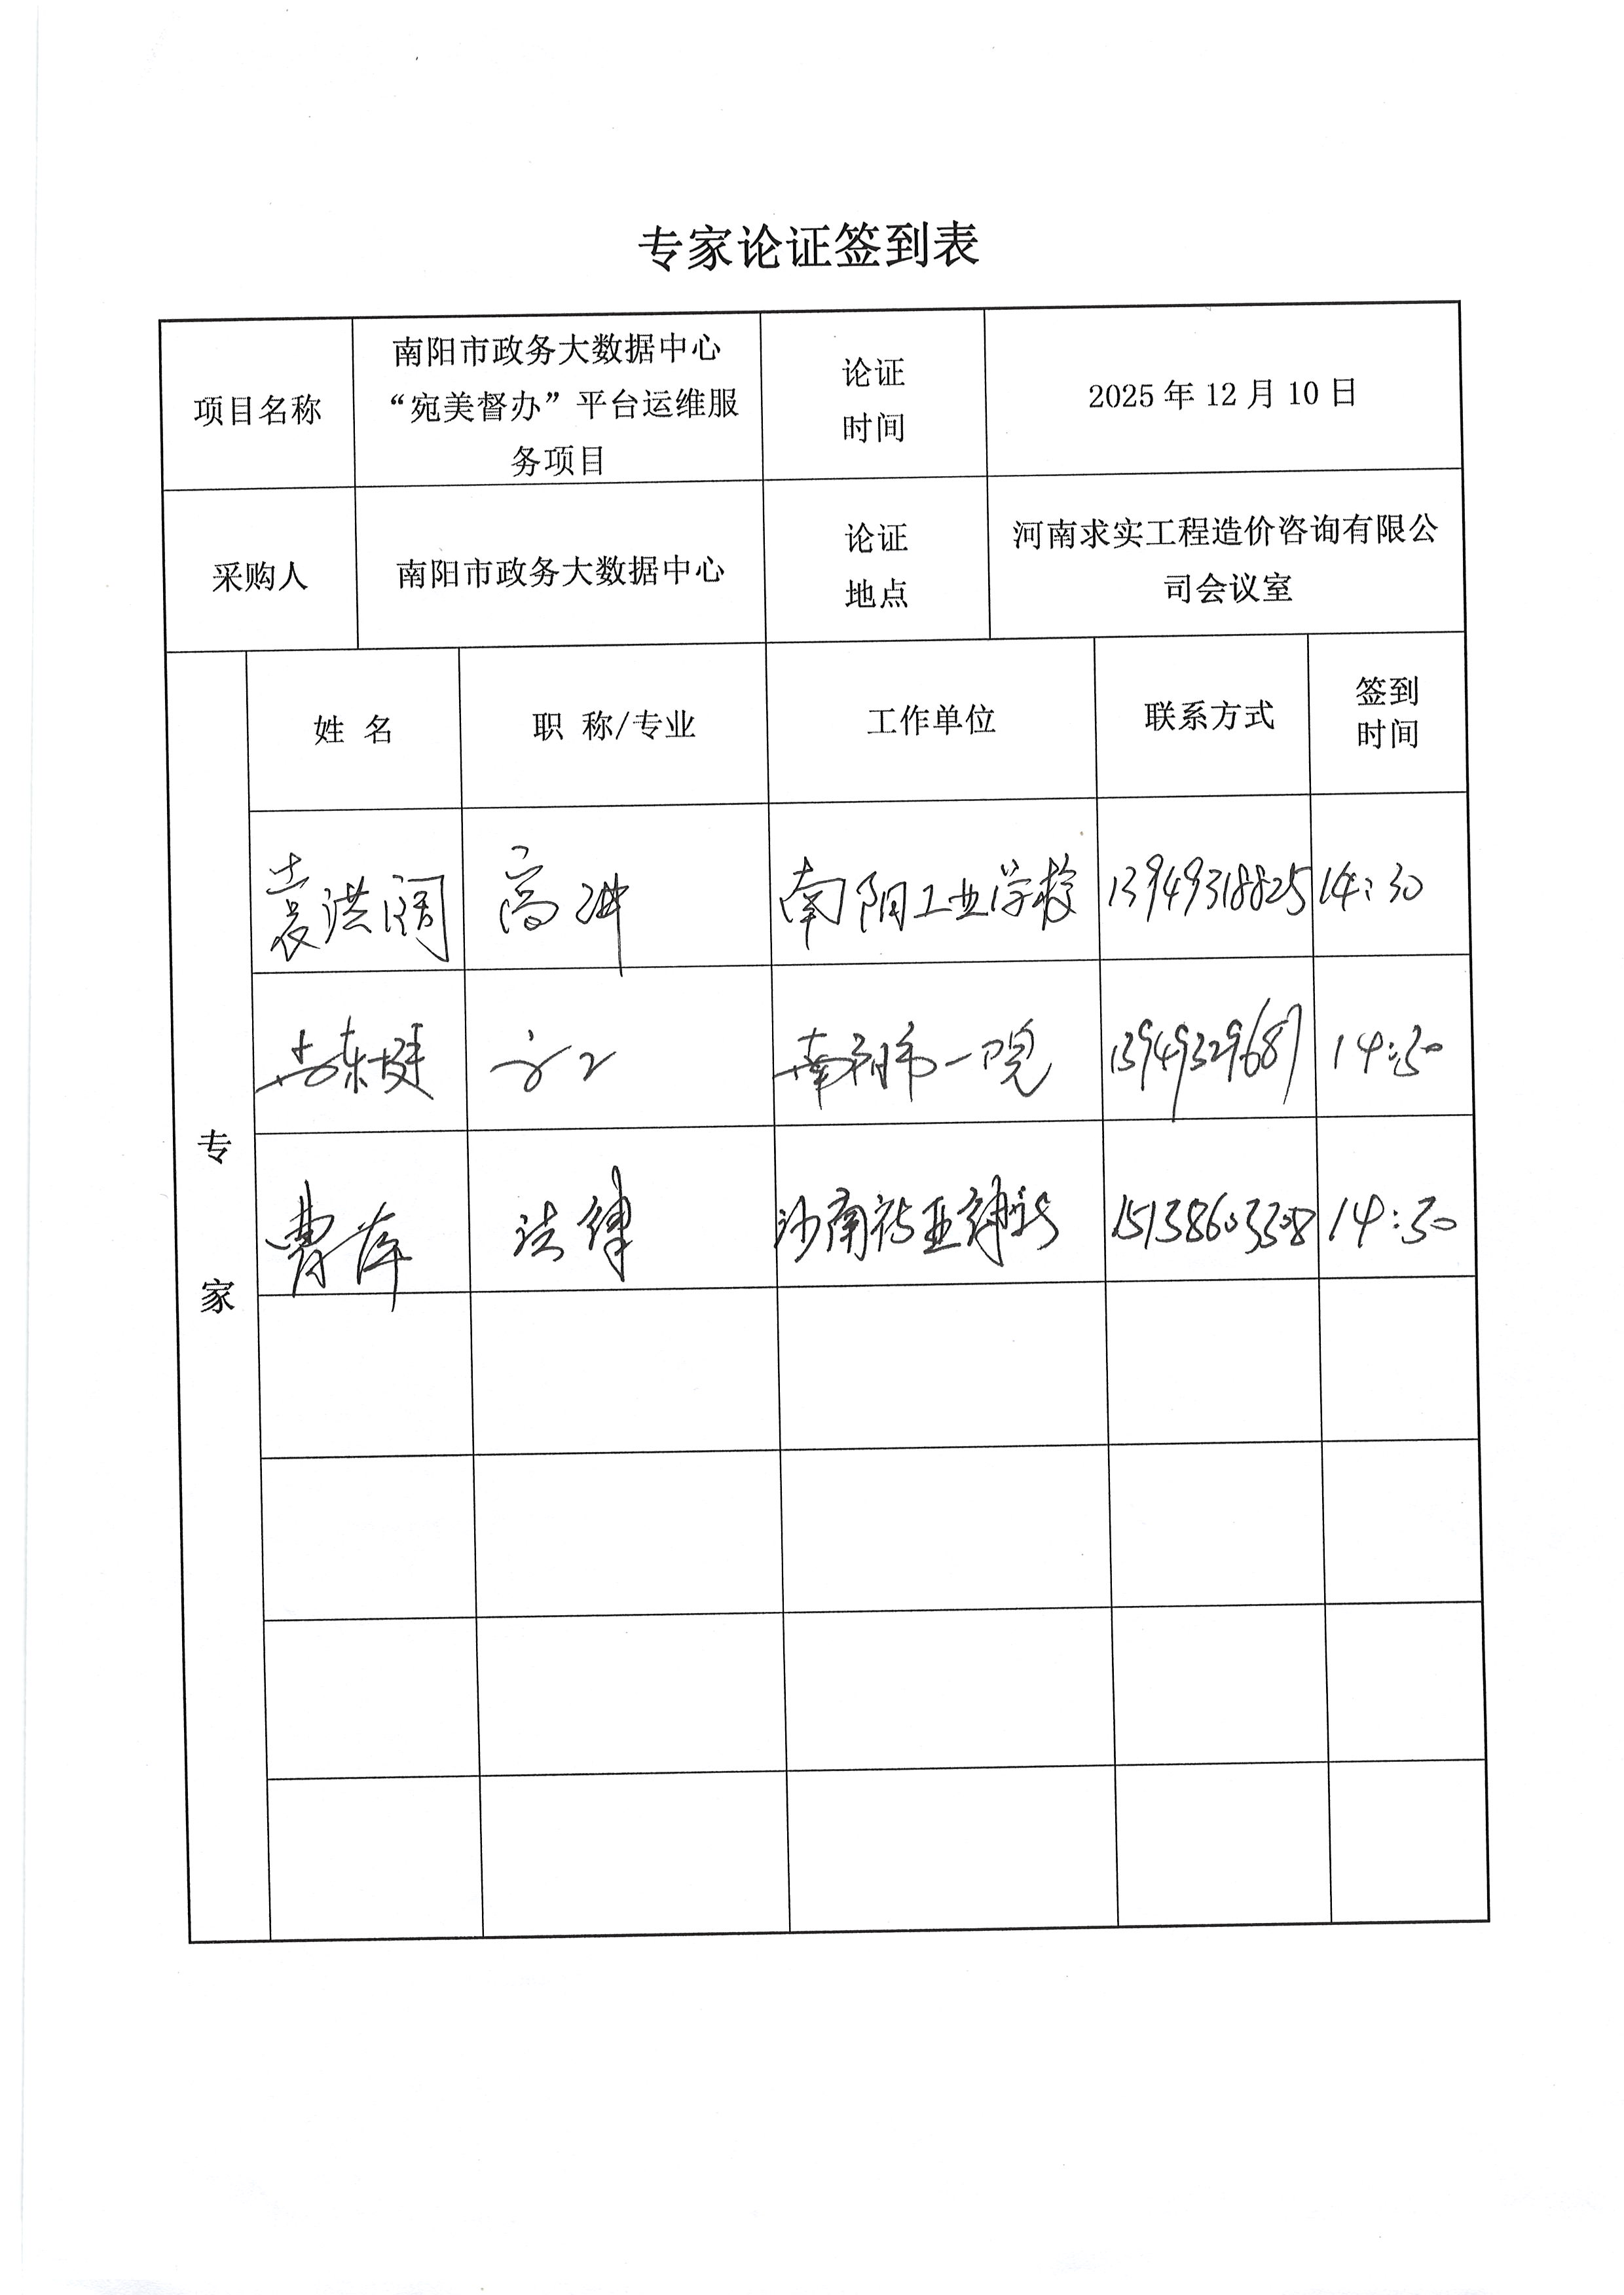 专家论证签到表
项目名称
南阳市政务大数据中心
“宛美督办”平台运维服
务项目
论证
时间
2025年12月10日
采购人
南阳市政务大数据中心
论证
地点
河南求实工程造价咨询有限公
司会议室
专
家
姓 名
职 称/专业
工作单位
联系方式
签到
时间
袁洪阔 高讲 南阳工业学校 13949318825 14:30
东 高工 南阳市一院 13949329687 14:30
曹萍 法律 河南 律所 15138603308 14:30